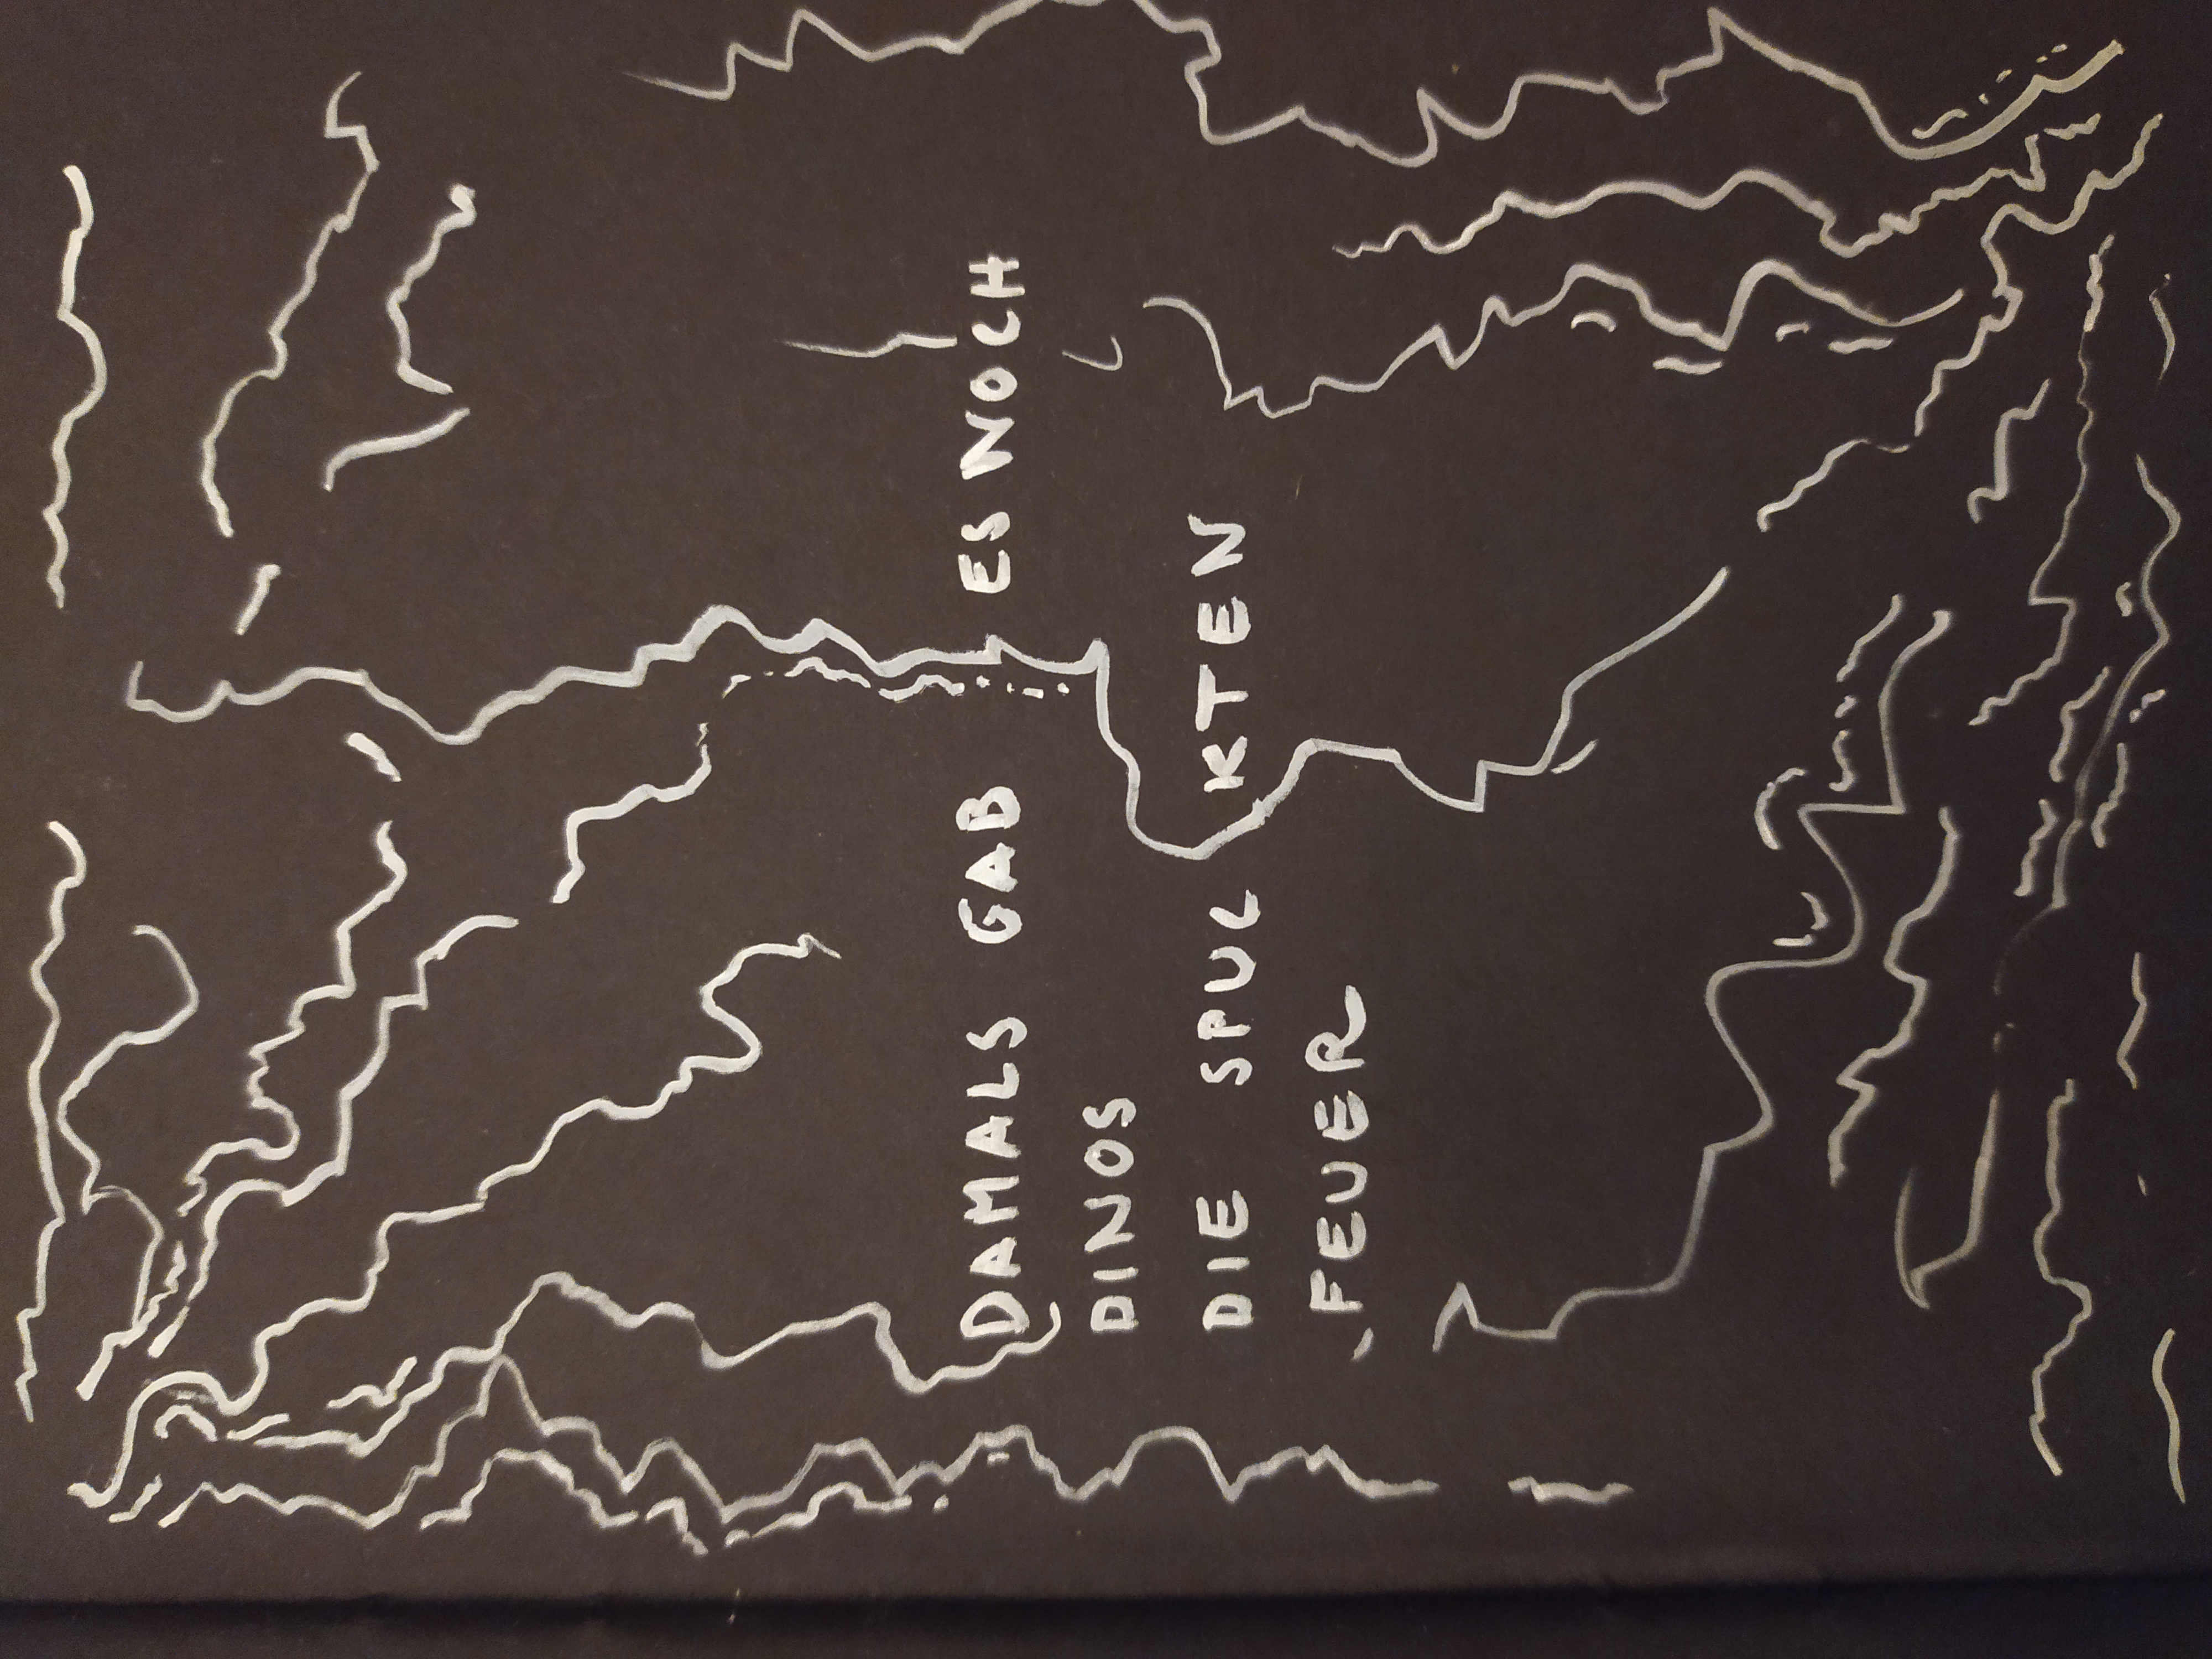 DAMALS GAB ES NOCH
DINOS
DIE SPUCKTEN
FEUER